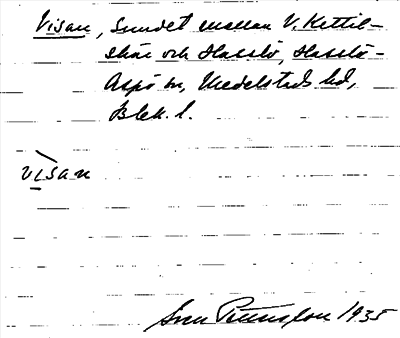 Visan, Sundet mellan V. Kettil-
skär och Hasslö, Hasslö-
Aspö sn, Medelstads hd,
Blek. l.
visan
Sven Petersson 1935